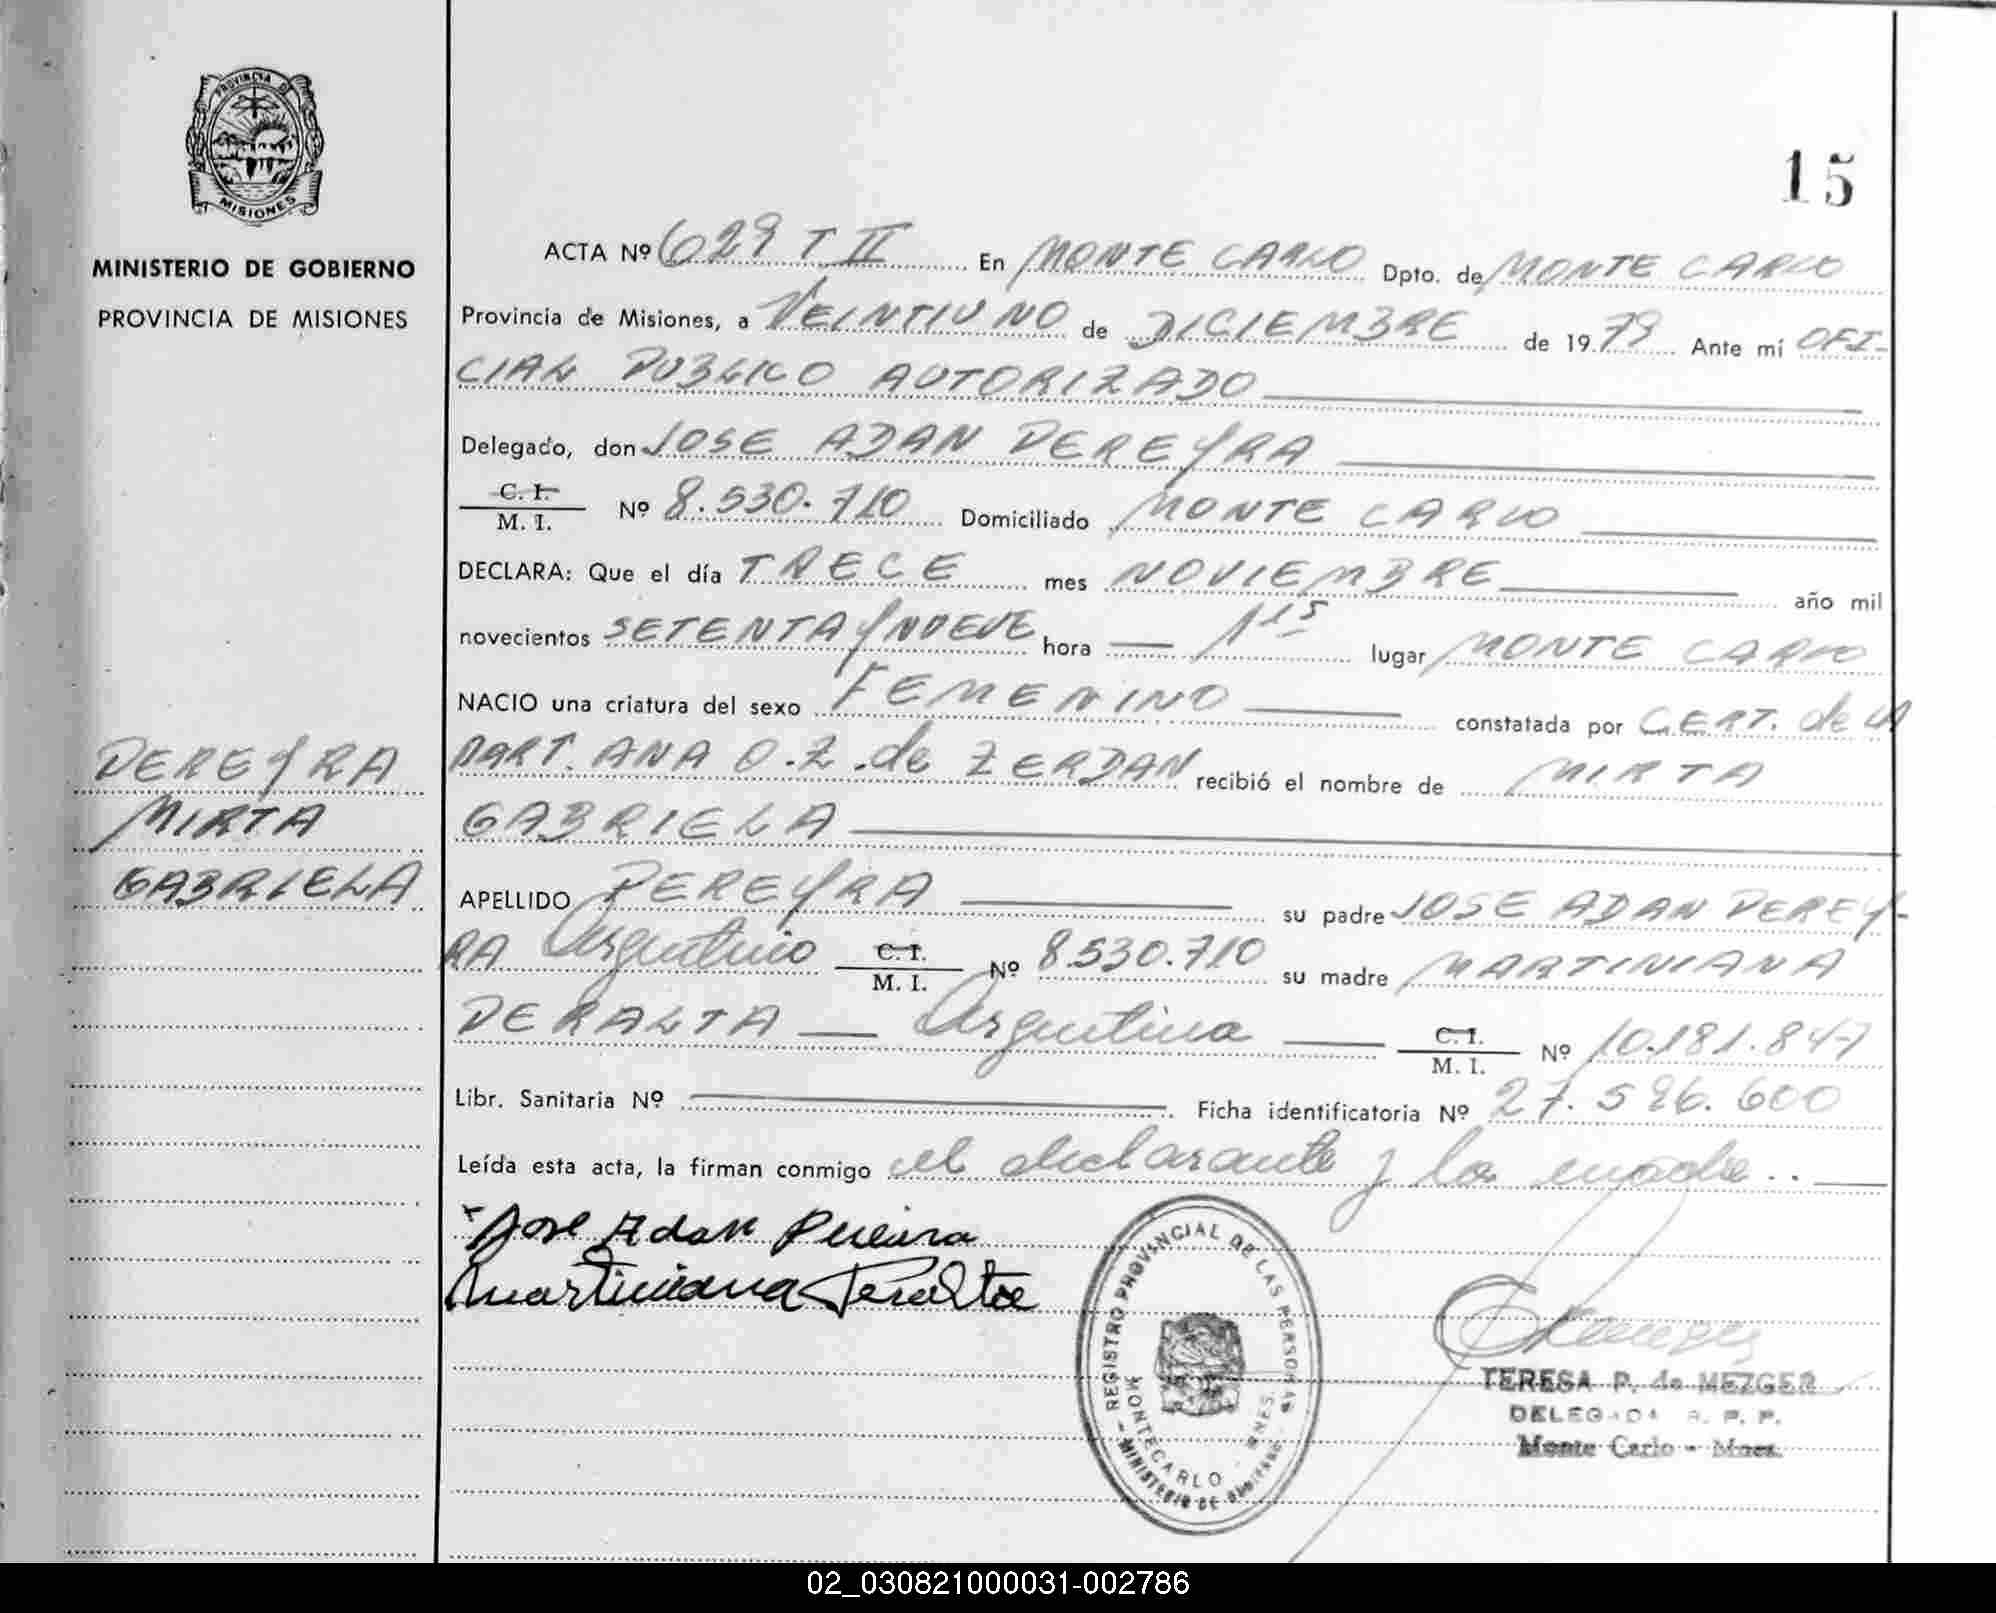 PROVINCIA DE
MISIONES
MINISTERIO DE GOBIERNO
PROVINCIA DE MISIONES
PEREYRA
MIRTA
GABRIELA
15
ACTA Nº 629 T II En MONTE CARLO Dpto. de MONTE CARLO
Provincia de Misiones, a VEINTIUNO de DICIEMBRE de 1979 Ante mí OFI-
CIAL PUBLICO AUTORIZADO
Delegado, don JOSE ADAN PEREYRA
C. I.
M. I. Nº 8.530.710 Domiciliado MONTE CARLO
DECLARA: Que el día TRECE mes NOVIEMBRE año mil
novecientos SETENTA Y NUEVE hora — 1 15 lugar MONTE CARLO
NACIO una criatura del sexo FEMENINO constatada por CERT. de LA
PART. ANA O. Z. de ZERDAN recibió el nombre de MIRTA
GABRIELA
APELLIDO PEREYRA su padre JOSE ADAN PEREY-
RA Argentino C. I. M. I. Nº 8.530.710 su madre MARTINIANA
PERALTA — Argentina — C. I. M. I. Nº 10.181.847
Libr. Sanitaria Nº Ficha identificatoria Nº 27.526.600
Leída esta acta, la firman conmigo el declarante y la madre..
Jose Adan Pereira
Martiniana Peralta
REGISTRO PROVINCIAL DE LAS PERSONAS
MONTECARLO - MNES.
MINISTERIO DE GOBIERNO
TERESA P. de MEZGER
DELEGADA R. P. P.
Monte Carlo - Mnes.
02_030821000031-002786